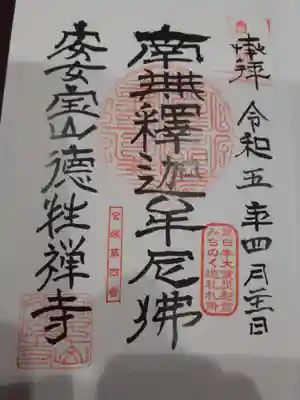 奉拝 令和五年四月
南無釋迦牟尼佛
東日本大震災慰霊
みちのく巡礼札所
宮城第四番
宝山徳性禅寺